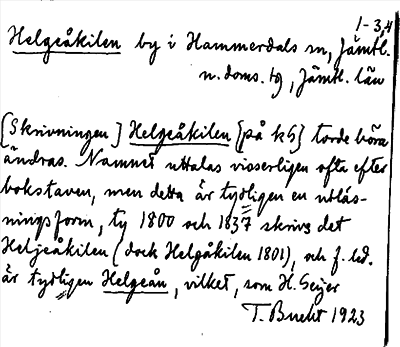 1-3,4
Helgeåkilen by i Hammerdals sn, Jämtl.
n. doms. tg, Jämtl. län
[Skrivningen] Helgeåkilen [på kS] torde böra
ändras. Namnet uttalas visserligen ofta efter
bokstaven, men detta är tydligen en utläs-
ningsform, ty 1800 och 1837 skrivs det
Heljeåkilen (dock Helgåkilen 1801), och f. led.
är tydligen Helgeån, vilket, som H. Geijer
T. Bucht 1923